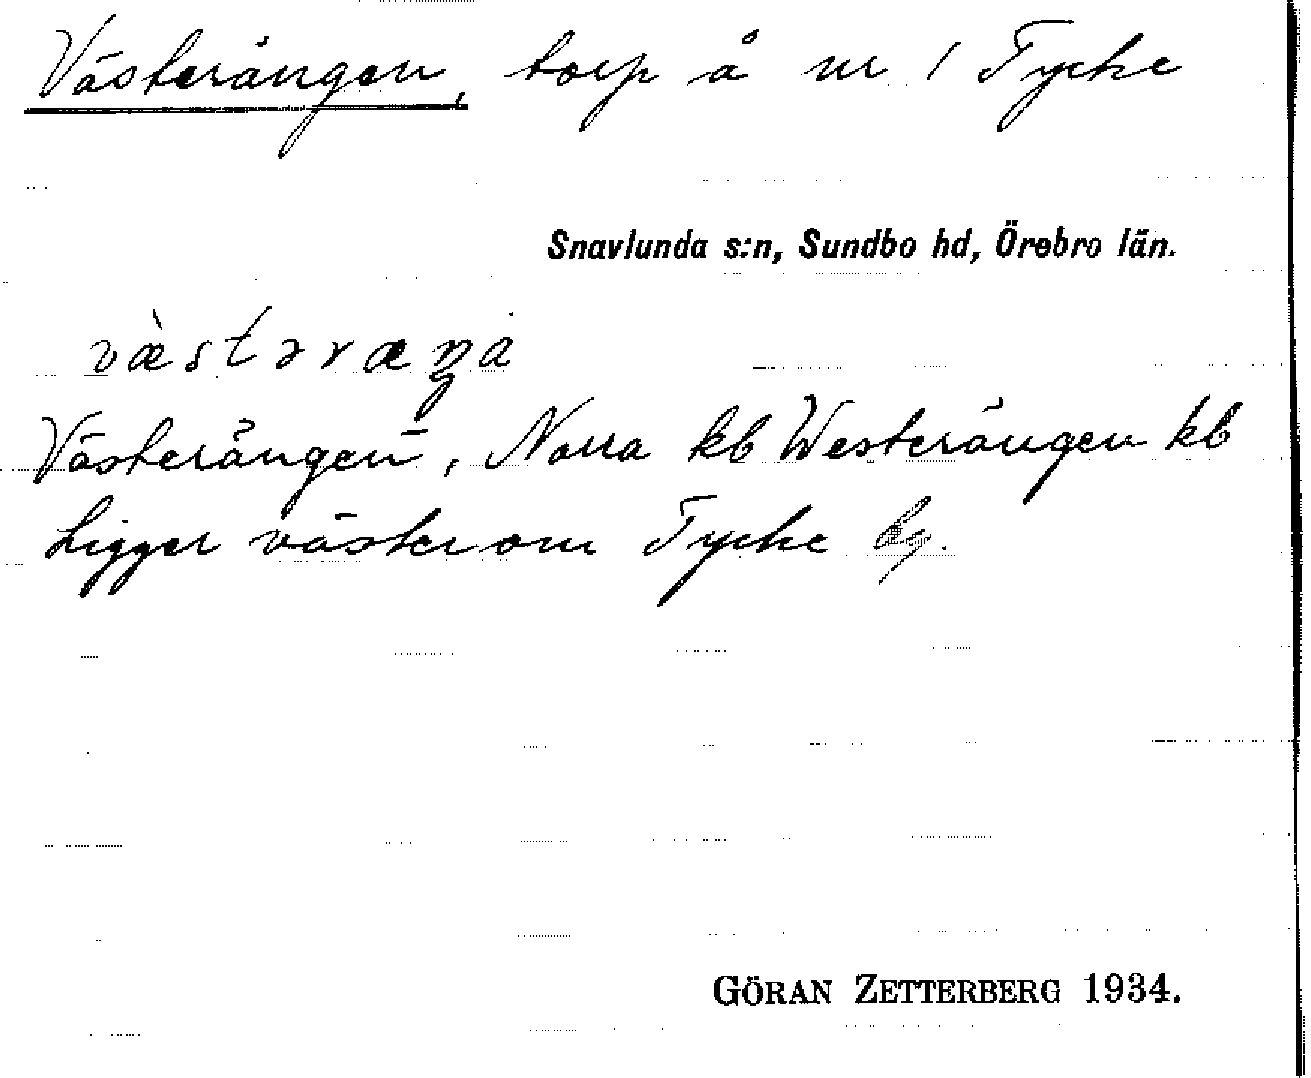 Västerängen, torp å nr 1 Tyche
Snavlunda s:n, Sundbo hd, Örebro län.
væ̀stəræŋa
Västerängen, Norra kb Westerängen kb
Ligger väster om Tyche by.
GÖRAN ZETTERBERG 1934.